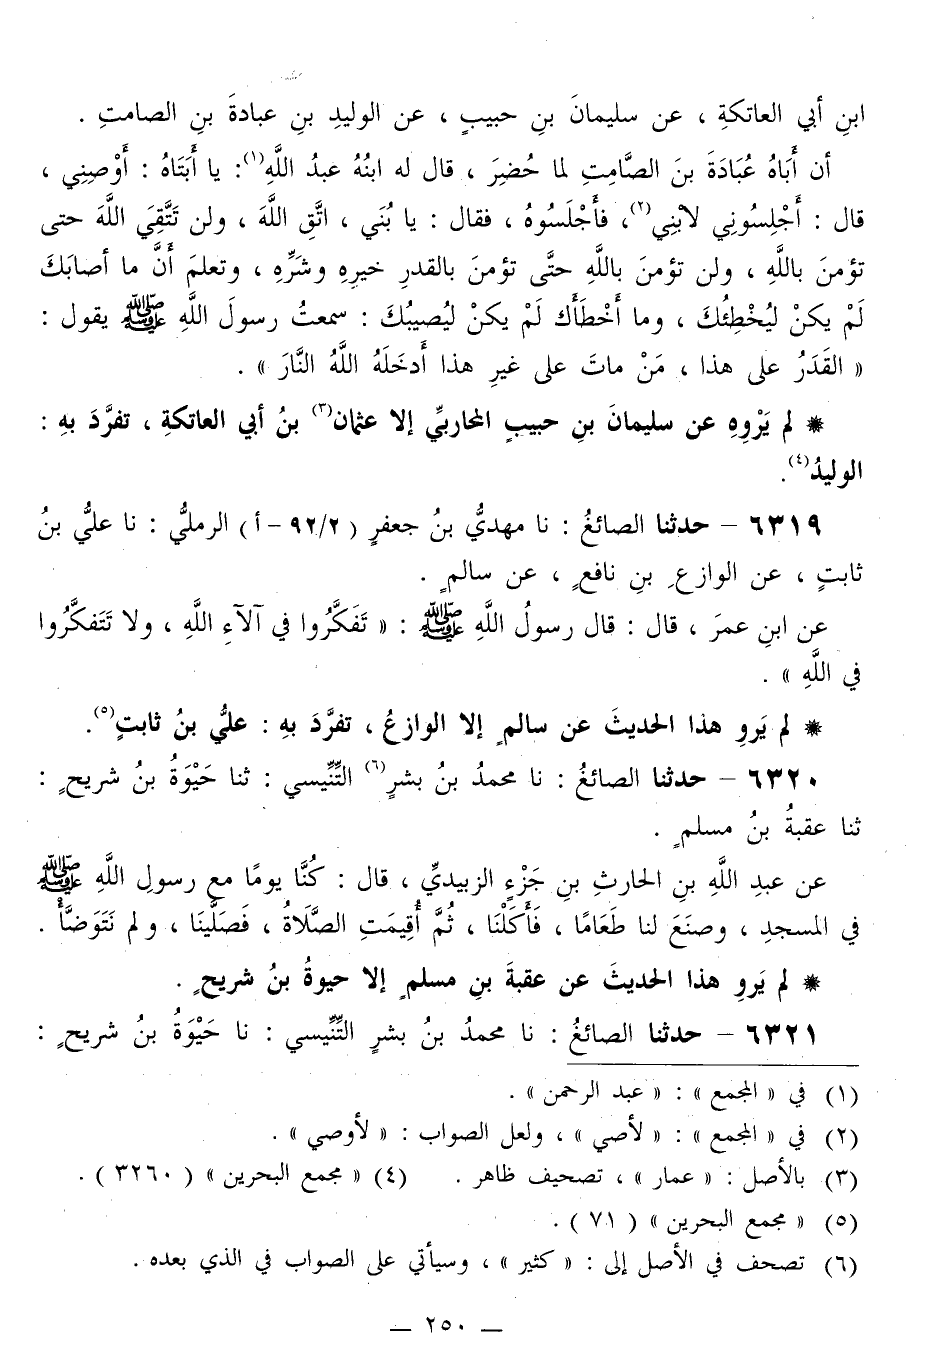 ابنِ أبي العاتكةِ ، عن سليمانَ بنِ حبيبٍ ، عن الوليدِ بنِ عبادةَ بنِ الصامتِ .
أن أَبَاهُ عُبَادَةَ بنَ الصَّامِتِ لما حُضِرَ ، قال له ابنُهُ عبدُ اللَّهِ(١): يا أَبَتَاهُ : أَوْصِنِي ،
قال : أَجْلِسُونِي لابْنِي(٢)، فأَجْلَسُوهُ ، فقال : يا بُنَي ، اتَّقِ اللَّهَ ، ولن تَتَّقِيَ اللَّهَ حتى
تؤمنَ باللَّهِ ، ولن تؤمنَ باللَّهِ حتَّى تؤمنَ بالقدرِ خيرِهِ وشَرِّهِ ، وتعلمَ أَنَّ ما أصابَكَ
لَمْ يكنْ ليُخْطِئُكَ ، وما أَخْطَأَك لَمْ يكنْ ليُصيبُكَ : سمعتُ رسولَ اللَّهِ ﷺ يقول :
« القَدَرُ على هذا ، مَنْ ماتَ على غيرِ هذا أدخَلَهُ اللَّهُ النَّارَ » .
* لم يَرْوِهِ عن سليمانَ بنِ حبيبٍ المحاربيِّ إلا عثمان(٣) بنُ أبي العاتكةِ ، تفرَّدَ بهِ :
الوليدُ(٤).
٦٣١٩ – حدثنا الصائغُ : نا مهديُّ بنُ جعفرٍ ( ٢/ ٩٢ - أ ) الرمليُّ : نا عليُّ بنُ
ثابتٍ ، عن الوازعِ بنِ نافعٍ ، عن سالمٍ .
عن ابنِ عمرَ ، قال : قال رسولُ اللَّهِ ﷺ : « تَفَكَّرُوا في آلآءِ اللَّهِ ، ولا تَتَفكَّرُوا
في اللَّهِ » .
* لم يَروِ هذا الحديثَ عن سالمٍ إلا الوازعُ ، تفرَّدَ بهِ : عليُّ بنُ ثابتٍ(٥).
٦٣٢٠ – حدثنا الصائغُ : نا محمدُ بنُ بشرٍ(٦) التِّنِّيسي : ثنا حَيْوَةُ بنُ شريحٍ :
ثنا عقبةُ بنُ مسلمٍ .
عن عبدِ اللَّهِ بنِ الحارثِ بنِ جَزْءٍ الزبيديِّ ، قال : كُنَّا يومًا مع رسولِ اللَّهِ ﷺ
في المسجدِ ، وصنَعَ لنا طَعَامًا ، فَأَكَلْنَا ، ثُمَّ أُقِيمَتِ الصَّلَاةُ ، فَصَلَّينَا ، ولم نَتَوَضَّأْ .
* لم يَروِ هذا الحديثَ عن عقبةَ بنِ مسلمٍ إلا حيوةُ بنُ شريحٍ .
٦٣٢١ – حدثنا الصائغُ : نا محمدُ بنُ بشرٍ التِّنِّيسي : نا حَيْوَةُ بنُ شريحٍ :
(١) في « المجمع » : « عبد الرحمن » .
(٢) في « المجمع » : « لأصي » ، ولعل الصواب : « لأوصي » .
(٣) بالأصل : « عمار » ، تصحيف ظاهر . (٤) « مجمع البحرين » ( ٣٢٦٠ ) .
(٥) « مجمع البحرين » ( ٧١ ) .
(٦) تصحف في الأصل إلى : « كثير » ، وسيأتي على الصواب في الذي بعده .
— ٢٥٠ —